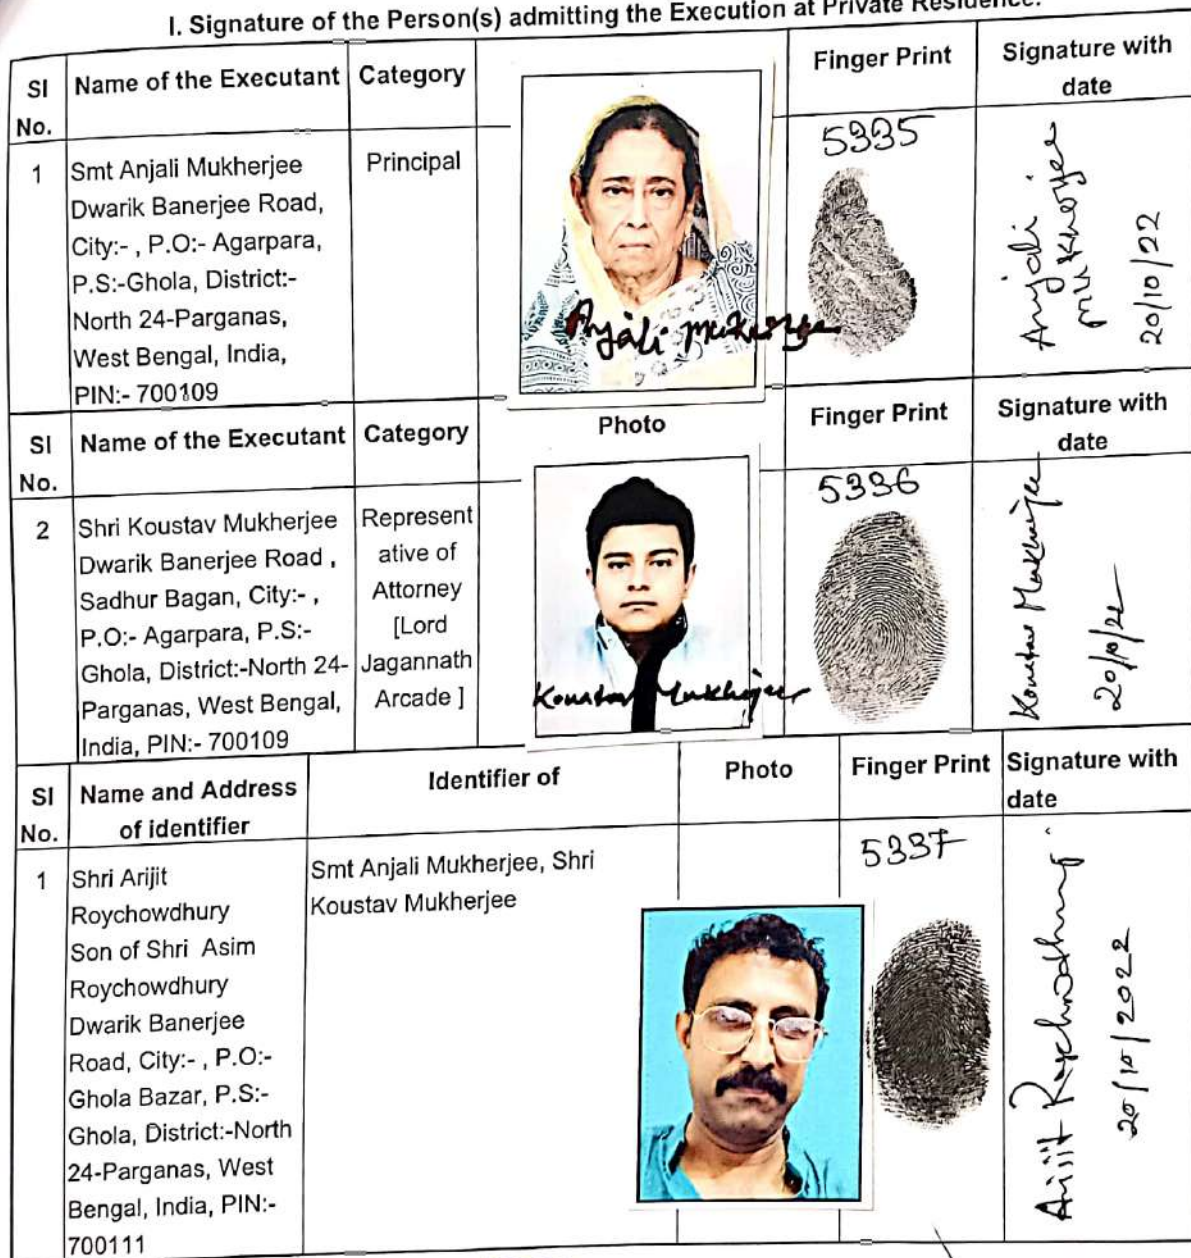 I. Signature of the Person(s) admitting the Execution at Private Residence.
Sl No.
Name of the Executant
Category
Finger Print
Signature with date
1
Smt Anjali Mukherjee
Dwarik Banerjee Road,
City:- , P.O:- Agarpara,
P.S:-Ghola, District:-
North 24-Parganas,
West Bengal, India,
PIN:- 700109
Principal
Anjali Mukherjee
5335
Anjali
Mukherjee
20/10/22
Sl No.
Name of the Executant
Category
Photo
Finger Print
Signature with date
2
Shri Koustav Mukherjee
Dwarik Banerjee Road ,
Sadhur Bagan, City:- ,
P.O:- Agarpara, P.S:-
Ghola, District:-North 24-
Parganas, West Bengal,
India, PIN:- 700109
Represent
ative of
Attorney
[Lord
Jagannath
Arcade ]
Koustav Mukherjee
5336
Koustav Mukherjee
20/10/22
Sl No.
Name and Address
of identifier
Identifier of
Photo
Finger Print
Signature with
date
1
Shri Arijit
Roychowdhury
Son of Shri Asim
Roychowdhury
Dwarik Banerjee
Road, City:- , P.O:-
Ghola Bazar, P.S:-
Ghola, District:-North
24-Parganas, West
Bengal, India, PIN:-
700111
Smt Anjali Mukherjee, Shri
Koustav Mukherjee
5337
Arijit Roychowdhury
20/10/2022